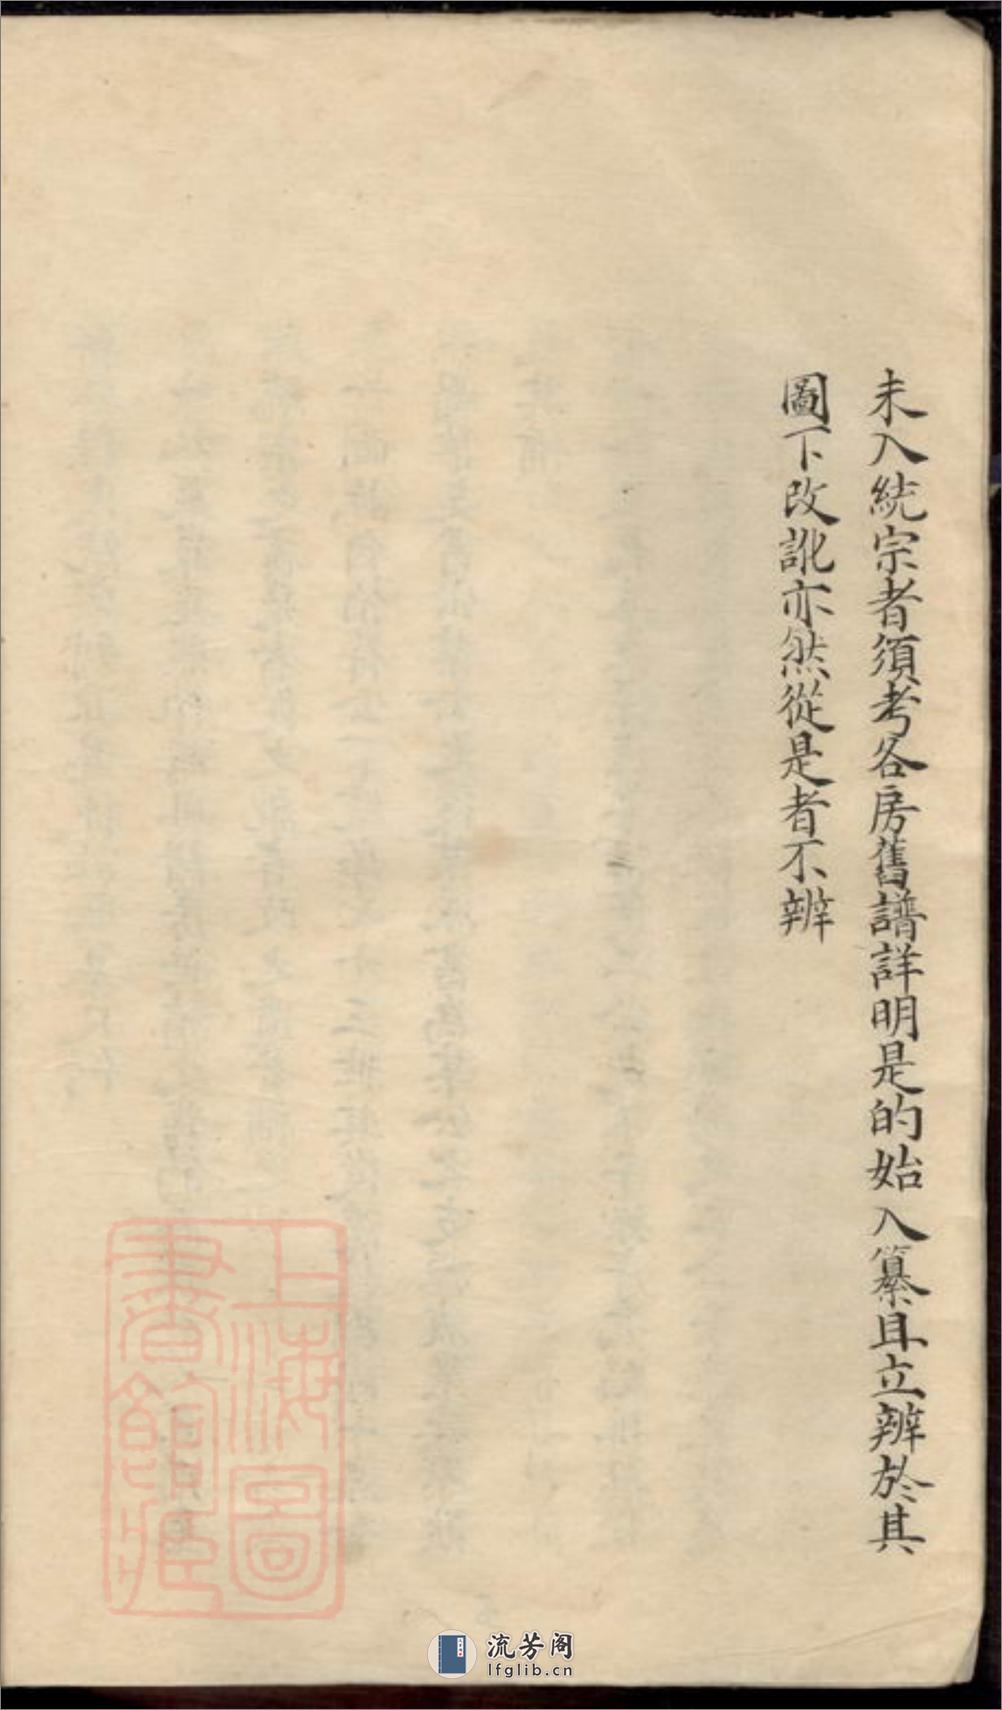 未入統宗者須考各房舊譜詳明是的始入纂且立辨於其
圖下改訛亦然從是者不辨
上海圖
書館藏
流芳阁
lfglib.cn